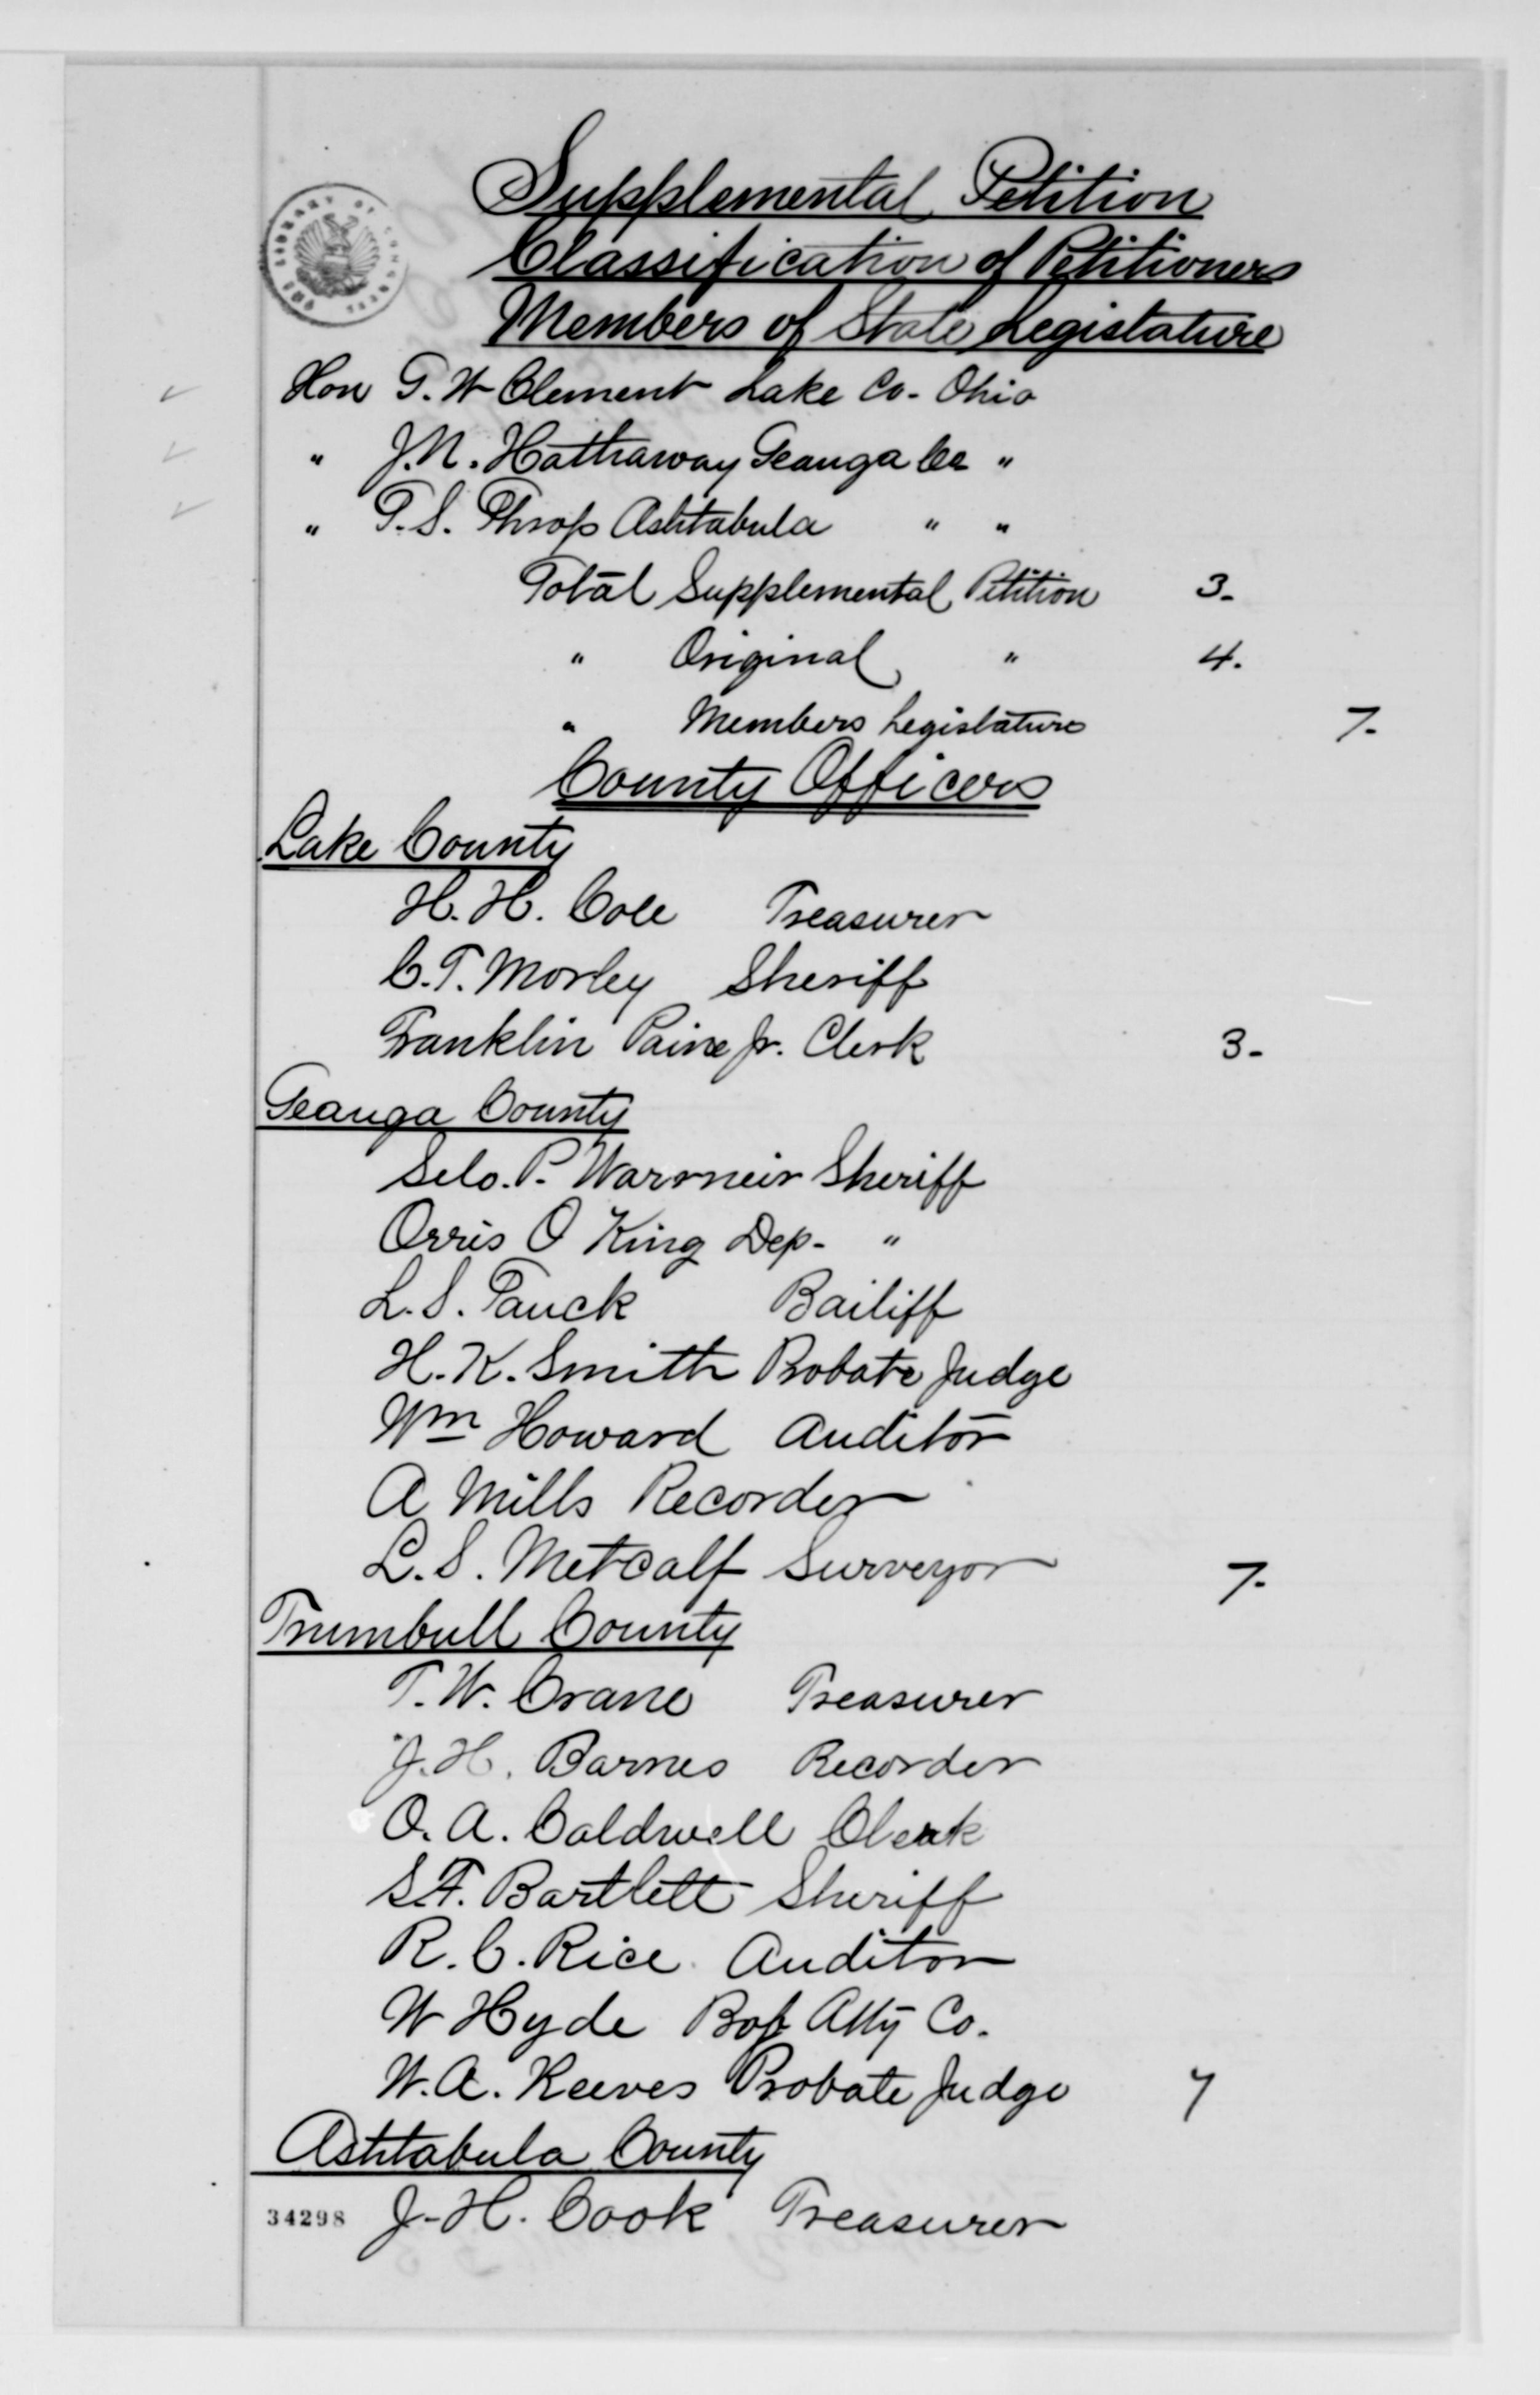 Supplemental Petition
Classification of Petitioners
Members of State Legislature
Hon G. W Clement Lake Co. Ohio
" J. N. Hathaway Geauga Co "
" T. S. Throp Ashtabula " "
Total Supplemental Petition 3.
" Original " 4.
" Members Legislature 7-
County Officers
Lake County
H. H. Cole Treasurer
C. T. Morley Sheriff
Franklin Paine Jr. Clerk 3-
Geauga County
P. Sheriff
Orris O King Dep- "
L. S. Bailiff
H. K. Smith Probate Judge
Wm Howard Auditor
A Mills Recorder
L. S. Metcalf Surveyor 7-
Trumbull County
T. W. Crane Treasurer
J. H. Barnes Recorder
O. A. Caldwell Clerk
S. F. Bartlett Sheriff
R. C. Rice Auditor
W Hyde Atty Co.
W. A. Reeves Probate Judge 7
Ashtabula County
34298 J-H. Cook Treasurer
THE LIBRARY OF CONGRESS